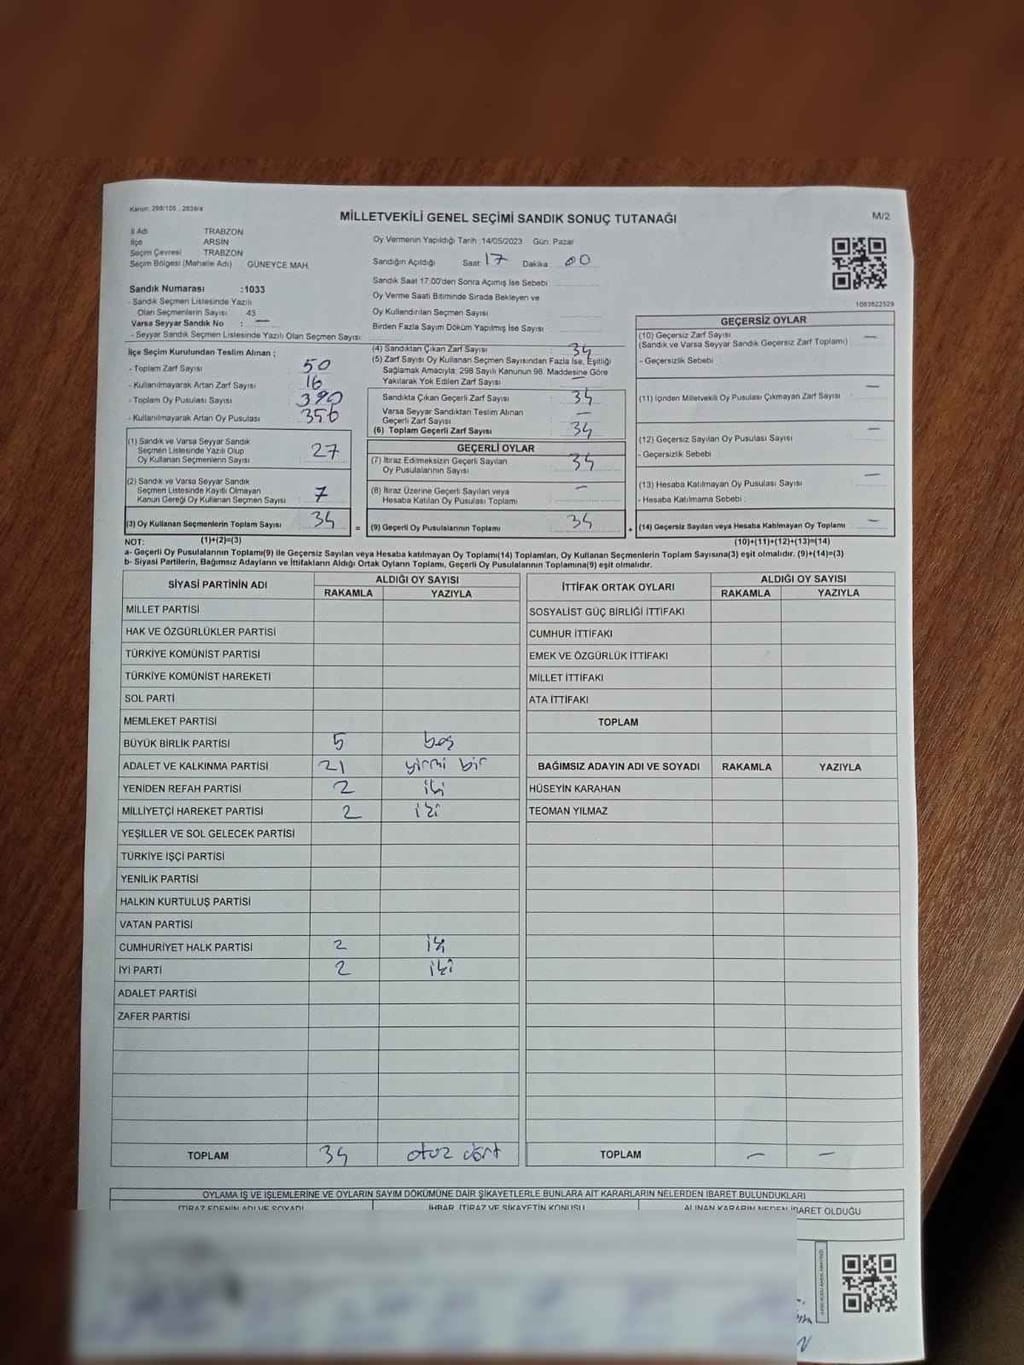 Kanun: 298/105 , 2839/4
MİLLETVEKİLİ GENEL SEÇİMİ SANDIK SONUÇ TUTANAĞI
M/2
İl Adı TRABZON
İlçe ARSİN
Seçim Çevresi TRABZON
Seçim Bölgesi (Mahalle Adı) GÜNEYCE MAH.
Oy Vermenin Yapıldığı Tarih :14/05/2023 Gün: Pazar
Sandığın Açıldığı Saat 17 Dakika 00
Sandık Saat 17:00'den Sonra Açılmış İse Sebebi
Oy Verme Saati Bitiminde Sırada Bekleyen ve
Oy Kullandırılan Seçmen Sayısı
Birden Fazla Sayım Döküm Yapılmış İse Sayısı
1083622529
Sandık Numarası :1033
- Sandık Seçmen Listesinde Yazılı
Olan Seçmenlerin Sayısı 43
Varsa Seyyar Sandık No : —
- Seyyar Sandık Seçmen Listesinde Yazılı Olan Seçmen Sayısı
İlçe Seçim Kurulundan Teslim Alınan ;
- Toplam Zarf Sayısı 50
- Kullanılmayarak Artan Zarf Sayısı 16
- Toplam Oy Pusulası Sayısı 390
- Kullanılmayarak Artan Oy Pusulası 356
(1) Sandık ve Varsa Seyyar Sandık
Seçmen Listesinde Yazılı Olup
Oy Kullanan Seçmenlerin Sayısı 27
(2) Sandık ve Varsa Seyyar Sandık
Seçmen Listesinde Kayıtlı Olmayan
Kanun Gereği Oy Kullanan Seçmen Sayısı 7
(3) Oy Kullanan Seçmenlerin Toplam Sayısı 34
(4) Sandıktan Çıkan Zarf Sayısı 34
(5) Zarf Sayısı Oy Kullanan Seçmen Sayısından Fazla İse, Eşitliği
Sağlamak Amacıyla; 298 Sayılı Kanunun 98. Maddesine Göre
Yakılarak Yok Edilen Zarf Sayısı —
Sandıkta Çıkan Geçerli Zarf Sayısı 34
Varsa Seyyar Sandıktan Teslim Alınan
Geçerli Zarf Sayısı —
(6) Toplam Geçerli Zarf Sayısı 34
GEÇERLİ OYLAR
(7) İtiraz Edilmeksizin Geçerli Sayılan
Oy Pusulalarının Sayısı 34
(8) İtiraz Üzerine Geçerli Sayılan veya
Hesaba Katılan Oy Pusulası Toplamı —
= (9) Geçerli Oy Pusulalarının Toplamı 34
GEÇERSİZ OYLAR
(10) Geçersiz Zarf Sayısı —
(Sandık ve Varsa Seyyar Sandık Geçersiz Zarf Toplamı)
- Geçersizlik Sebebi
(11) İçinden Milletvekili Oy Pusulası Çıkmayan Zarf Sayısı —
(12) Geçersiz Sayılan Oy Pusulası Sayısı —
- Geçersizlik Sebebi
(13) Hesaba Katılmayan Oy Pusulası Sayısı —
- Hesaba Katılmama Sebebi :
+ (14) Geçersiz Sayılan veya Hesaba Katılmayan Oy Toplamı —
NOT: (1)+(2)=(3) (10)+(11)+(12)+(13)=(14)
a- Geçerli Oy Pusulalarının Toplamı(9) ile Geçersiz Sayılan veya Hesaba katılmayan Oy Toplamı(14) Toplamları, Oy Kullanan Seçmenlerin Toplam Sayısına(3) eşit olmalıdır. (9)+(14)=(3)
b- Siyasi Partilerin, Bağımsız Adayların ve İttifakların Aldığı Ortak Oyların Toplamı, Geçerli Oy Pusulalarının Toplamına(9) eşit olmalıdır.
SİYASİ PARTİNİN ADI ALDIĞI OY SAYISI
RAKAMLA YAZIYLA
MİLLET PARTİSİ
HAK VE ÖZGÜRLÜKLER PARTİSİ
TÜRKİYE KOMÜNİST PARTİSİ
TÜRKİYE KOMÜNİST HAREKETİ
SOL PARTİ
MEMLEKET PARTİSİ
BÜYÜK BİRLİK PARTİSİ 5 beş
ADALET VE KALKINMA PARTİSİ 21 yirmi bir
YENİDEN REFAH PARTİSİ 2 iki
MİLLİYETÇİ HAREKET PARTİSİ 2 iki
YEŞİLLER VE SOL GELECEK PARTİSİ
TÜRKİYE İŞÇİ PARTİSİ
YENİLİK PARTİSİ
HALKIN KURTULUŞ PARTİSİ
VATAN PARTİSİ
CUMHURİYET HALK PARTİSİ 2 iki
İYİ PARTİ 2 iki
ADALET PARTİSİ
ZAFER PARTİSİ
TOPLAM 34 otuz dört
İTTİFAK ORTAK OYLARI ALDIĞI OY SAYISI
RAKAMLA YAZIYLA
SOSYALİST GÜÇ BİRLİĞİ İTTİFAKI
CUMHUR İTTİFAKI
EMEK VE ÖZGÜRLÜK İTTİFAKI
MİLLET İTTİFAKI
ATA İTTİFAKI
TOPLAM
BAĞIMSIZ ADAYIN ADI VE SOYADI RAKAMLA YAZIYLA
HÜSEYİN KARAHAN
TEOMAN YILMAZ
TOPLAM — —
OYLAMA İŞ VE İŞLEMLERİNE VE OYLARIN SAYIM DÖKÜMÜNE DAİR ŞİKAYETLERLE BUNLARA AİT KARARLARIN NELERDEN İBARET BULUNDUKLARI
İTİRAZ EDENİN ADI VE SOYADI İHBAR, İTİRAZ VE ŞİKAYETİN KONUSU ALINAN KARARIN NEDEN İBARET OLDUĞU